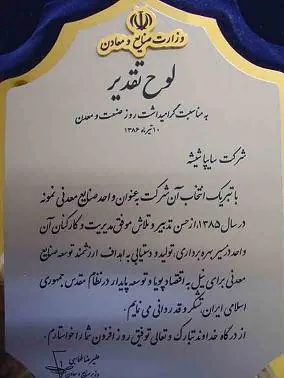 وزارت صنایع و معادن
لوح تقدیر
به مناسبت گرامیداشت روز صنعت و معدن
۱۰ تیرماه ۱۳۸۶
شرکت سایپا شیشه
با تبریک انتخاب آن شرکت به عنوان واحد صنایع معدنی نمونه
در سال ۱۳۸۵، از حسن تدبیر و تلاش موفق مدیریت و کارکنان آن
واحد در مسیر بهره برداری، تولید و دستیابی به اهداف ارزشمند توسعه صنایع
معدنی برای نیل به اقتصاد پویا و توسعه پایدار در نظام مقدس جمهوری
اسلامی ایران تشکر و قدردانی می نمایم.
از درگاه خداوند تبارک و تعالی توفیق روز افزون شما را خواستارم.
علیرضا طهماسبی
وزیر صنایع و معادن